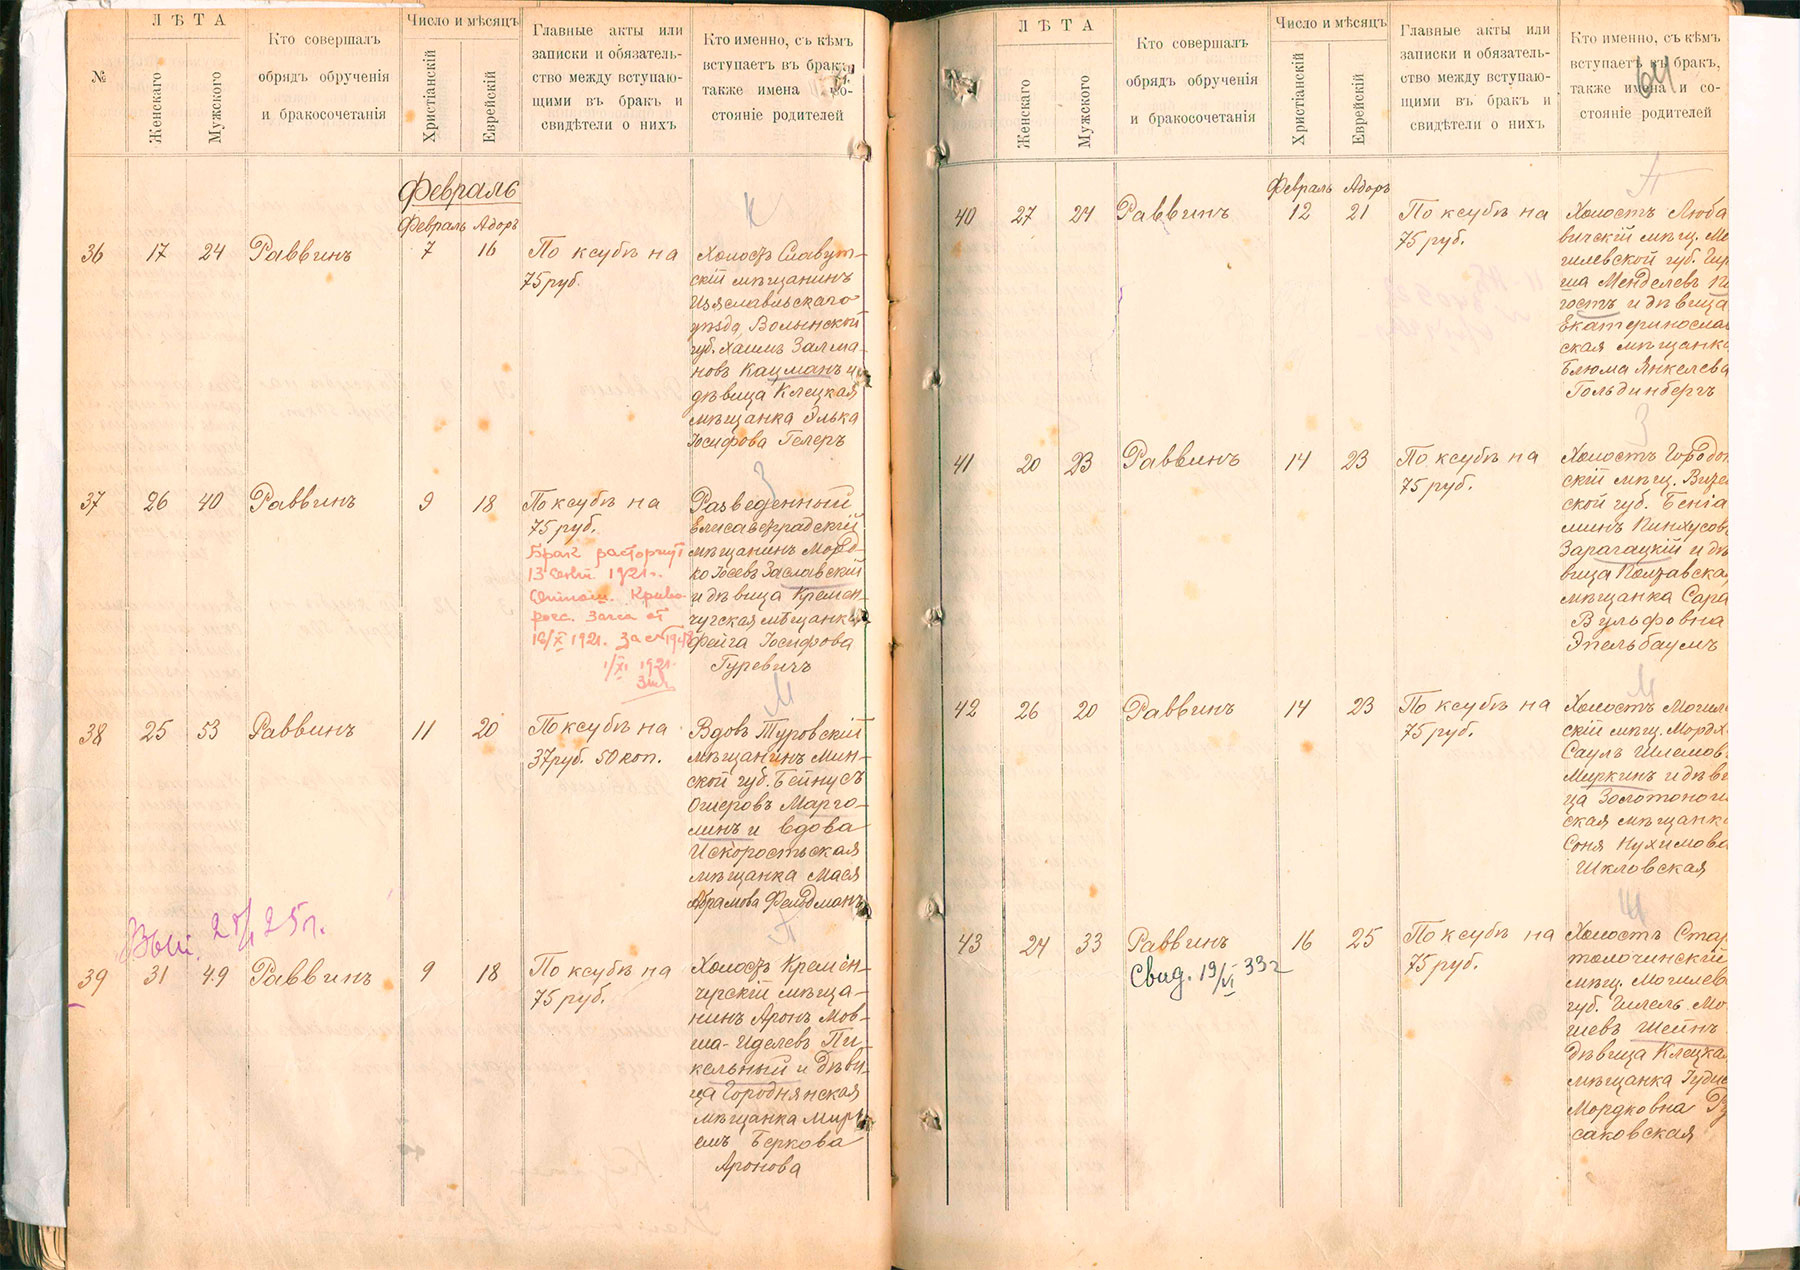 №
ЛѢТА
Женскаго
Мужского
Кто совершалъ
обрядъ обрученія
и бракосочетанія
Число и мѣсяцъ
Христіанскій
Еврейскій
Главные акты или
записки и обязатель-
ство между вступаю-
щими въ бракъ и
свидѣтели о нихъ
Кто именно, съ кѣмъ
вступаетъ въ бракъ,
также имена
стояніе родителей
Февраль
Февраль Адоръ
К
36 17 24 Раввинъ 7 16
По ксубѣ на
75 руб.
Холостъ Славут-
скій мѣщанинъ
Изяславльскаго
уѣзда, Волынской
губ. Хаимъ Залма-
новъ Кацманъ и
дѣвица Клецкая
мѣщанка Элька
Іосифова Гелеръ
З
37 26 40 Раввинъ 9 18
По ксубѣ на
75 руб.
Брак расторгнут
1921г.
1921г.
1/XI 1921г.
Разведенный
Елисаветградскій
мѣщанинъ Морд-
ко Іосевъ Заславскій
и дѣвица Кремен-
чугская мѣщанка
Фейга Іосифова
Гуревичъ
М
38 25 53 Раввинъ 11 20
По ксубѣ на
37 руб. 50 коп.
Вдовъ Туровскій
мѣщанинъ Мин-
ской губ. Бейнусъ
Ошеровъ Марго-
линъ и вдова
Искоростьская
мѣщанка Мася
Абрамова Фельдманъ
25г.
П
39 31 49 Раввинъ 9 18
По ксубѣ на
75 руб.
Холостъ Кремен-
чугскій мѣща-
нинъ Аронъ Мов-
ша-Иделевъ Пи-
кельный и дѣви-
ца Городнянская
мѣщанка Мирь-
емъ Беркова
Аронова
ЛѢТА
Женскаго
Мужского
Кто совершалъ
обрядъ обрученія
и бракосочетанія
Число и мѣсяцъ
Христіанскій
Еврейскій
Главные акты или
записки и обязатель-
ство между вступаю-
щими въ бракъ и
свидѣтели о нихъ
Кто именно, съ кѣмъ
вступаетъ въ бракъ,
также имена и со-
стояніе родителей
64
Февраль Адоръ
40 27 24 Раввинъ 12 21
По ксубѣ на
75 руб.
Холостъ Люба
вичскій мѣщ. Мо
гилевской губ. Гир
ша Менделевъ
гостъ и дѣвица
Екатеринослав
ская мѣщанка
Блюма Янкелева
Гольдинбергъ
З
41 20 23 Раввинъ 14 23
По ксубѣ на
75 руб.
Холостъ Городок
скій мѣщ. Витеб
ской губ. Беніа
минъ Пинхусов
Зарагацкій и дѣ
вица Полтавска
мѣщанка Сара
Вульфовна
Эпельбаумъ
М
42 26 20 Раввинъ 14 23
По ксубѣ на
75 руб.
Холостъ Могил
скій мѣщ. Мордх
Саулъ Шлемов
Миркинъ и дѣв
ца Золотонош
ская мѣщанк
Соня Нухимова
Шкловская
Ш
43 24 33 Раввинъ 16 25
Свид. 19/VI 33г
По ксубѣ на
75 руб.
Холостъ Стар
толочинскій
мѣщ. Могилев
губ. Гилель Мо
шевъ Шейнъ
дѣвица Клецкая
мѣщанка
Мордковна Ру
саковская